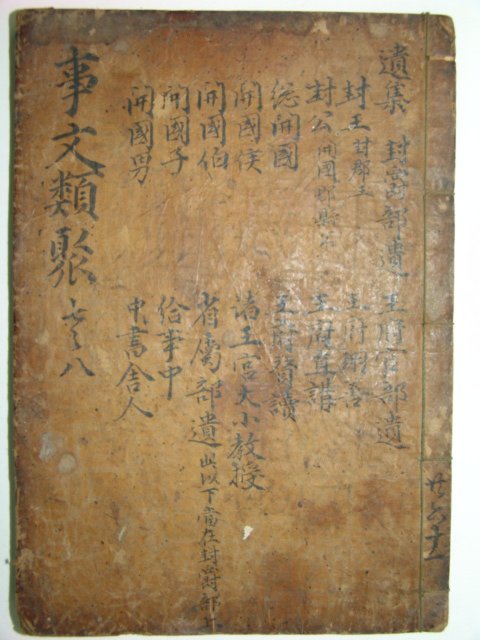 遺集 封爵部遺 王府官部遺
封王 封郡王 王府翊善
封公 開國郡縣公 王府直講
總開國 王府贊讀
開國侯 諸王宮大小教授
開國伯 省屬部遺 此以下當在封爵部上
開國子 給事中
開國男 中書舍人
事文類聚 七之八
六十一